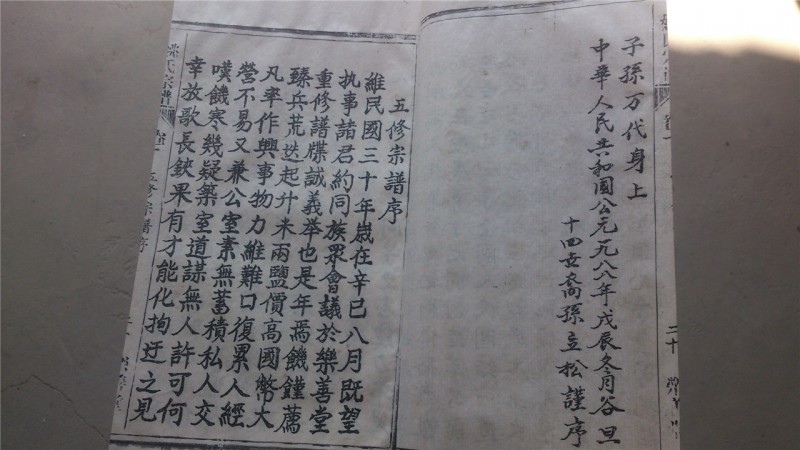 子孫万代身上
中華人民共和國公元一九八八年戊辰冬月谷旦
十四世裔孫立松謹序
二十
五修宗譜序
維民國三十年歲在辛巳八月既望
執事諸君約同族眾會議於樂善堂
重修譜牒誠義举也是年焉饑饉薦
臻兵荒迭起升米兩鹽價高國幣大
凡率作興事物力維難口復累人經
營不易又兼公室素無蓄積私人交
嘆饑寒幾疑築室道謀無人許可何
幸放歌長鋏果有才能化拘迂之見
氏宗譜
五修宗譜序